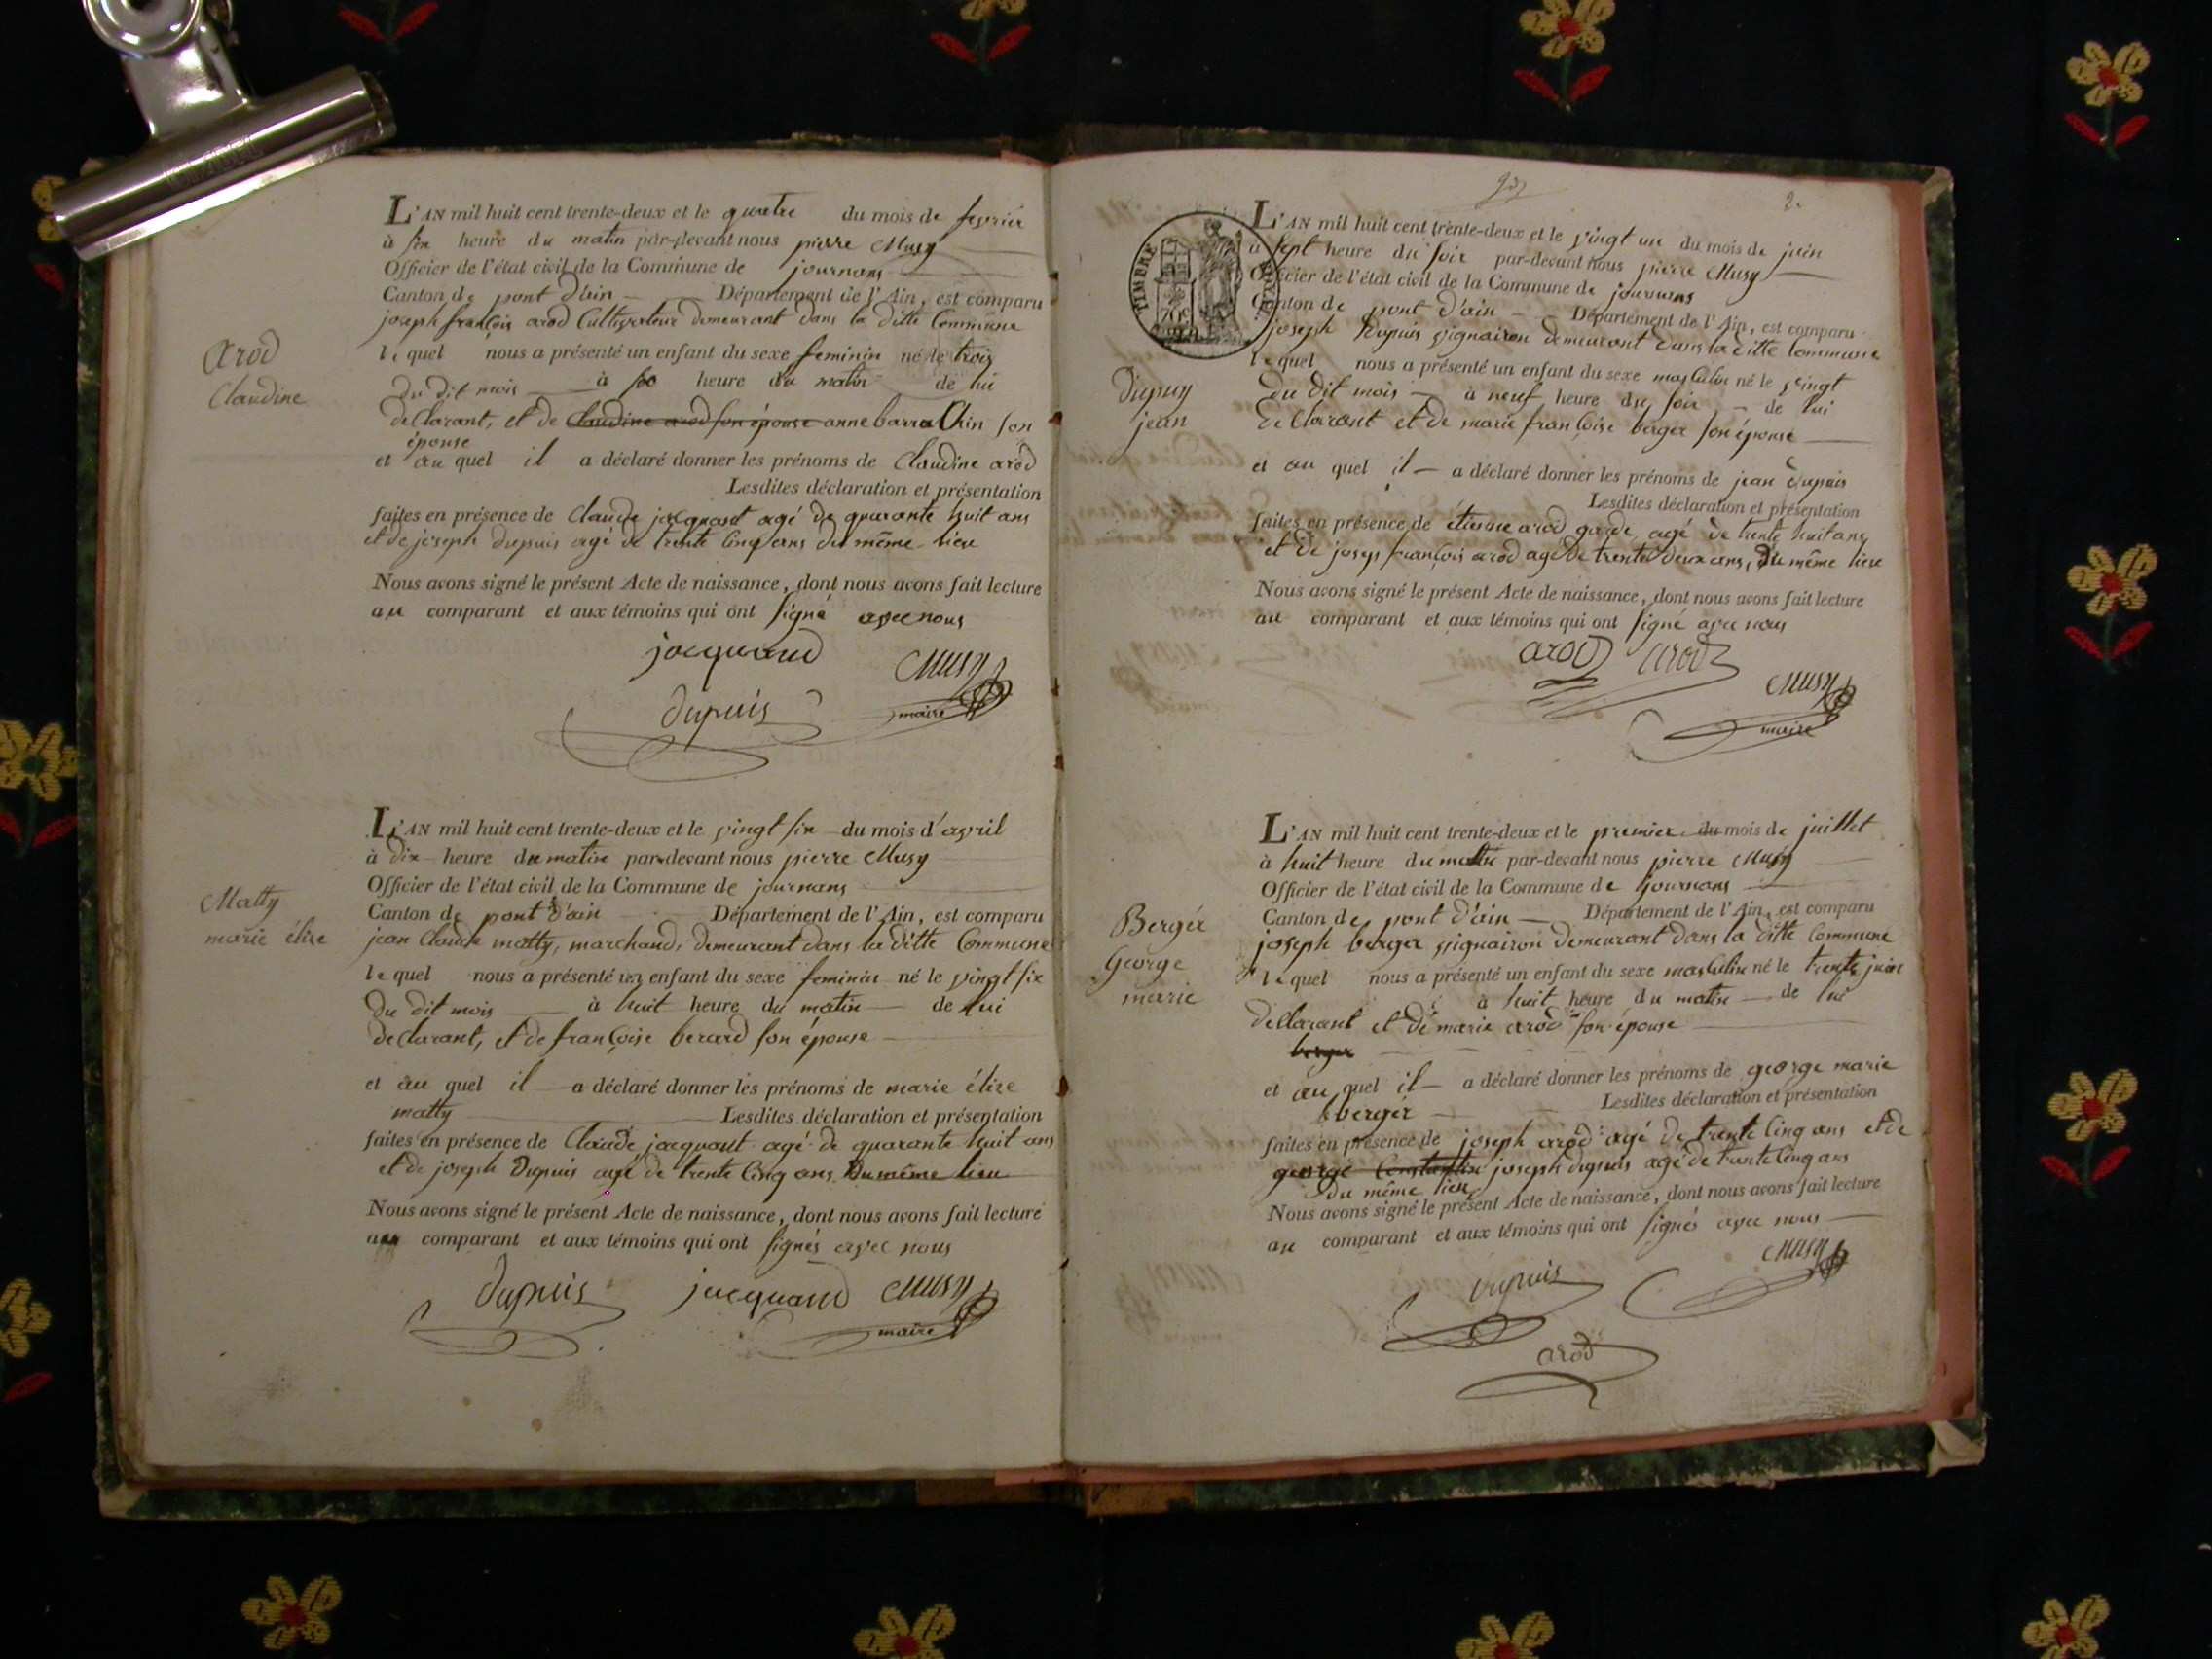 Arod
Claudine
L'AN mil huit cent trente-deux et le quatre du mois de fevrier
à six heure du matin par-devant nous pierre Musy
Officier de l'état civil de la Commune de journans
Canton de pont d'ain Département de l'Ain, est comparu
joseph françois arod Cultivateur demeurant dans la ditte Commune
lequel nous a présenté un enfant du sexe feminin né le trois
du dit mois à six heure du matin de lui
declarant, et de Claudine arod son épouse anne barra Chin son
épouse
et au quel il a déclaré donner les prénoms de Claudine arod
Lesdites déclaration et présentation
faites en présence de Claude jacquand agé de quarante huit ans
et de joseph dupuis agé de trente Cinq ans du même lieu
Nous avons signé le présent Acte de naissance, dont nous avons fait lecture
au comparant et aux témoins qui ont signé avec nous
jacquand
Musy
dupuis
maire
Matty
marie élise
L'AN mil huit cent trente-deux et le vingt six du mois d'avril
à dix heure du matin par-devant nous pierre Musy
Officier de l'état civil de la Commune de journans
Canton de pont d'ain Département de l'Ain, est comparu
jean Claude matty, marchand, demeurant dans la ditte Commune
lequel nous a présenté un enfant du sexe feminin né le vingt six
du dit mois à huit heure du matin de lui
declarant, et de françoise berard son épouse
et au quel il a déclaré donner les prénoms de marie élise
matty Lesdites déclaration et présentation
faites en présence de Claude jacquant agé de quarante huit ans
et de joseph Dupuis agé de trente Cinq ans Du même lieu
Nous avons signé le présent Acte de naissance, dont nous avons fait lecture
au comparant et aux témoins qui ont signés avec nous
dupuis jacquand Musy
maire
2.
TIMBRE ROYAL
Dupuy
jean
L'AN mil huit cent trente-deux et le vingt un du mois de juin
à sept heure du soir par-devant nous pierre Musy
Officier de l'état civil de la Commune de journans
Canton de pont d'ain Département de l'Ain, est comparu
joseph Dupuis vignairon demeurant dans la ditte Commune
lequel nous a présenté un enfant du sexe masculin né le vingt
du dit mois à neuf heure du soir de lui
declarant et de marie françoise berger son épouse
et au quel il a déclaré donner les prénoms de jean dupuis
Lesdites déclaration et présentation
faites en présence de étienne arod garde agé de trente huit ans
et de josep françois arod agé de trente deux ans, du même lieu
Nous avons signé le présent Acte de naissance, dont nous avons fait lecture
au comparant et aux témoins qui ont signé avec nous
arod arod
Musy
maire
Berger
George
marie
L'AN mil huit cent trente-deux et le premier du mois de juillet
à huit heure du matin par-devant nous pierre Musy
Officier de l'état civil de la Commune de journans
Canton de pont d'ain Département de l'Ain, est comparu
joseph berger vignairon demeurant dans la ditte Commune
lequel nous a présenté un enfant du sexe masculin né le trente juin
à huit heure du matin de lui
declarant et de marie arod son épouse
berger
et au quel il a déclaré donner les prénoms de george marie
berger Lesdites déclaration et présentation
faites en présence de joseph arod agé de trente Cinq ans et de
george Constantin joseph dupuis agé de trente Cinq ans
du même lieu
Nous avons signé le présent Acte de naissance, dont nous avons fait lecture
au comparant et aux témoins qui ont signés avec nous
Musy
dupuis
arod